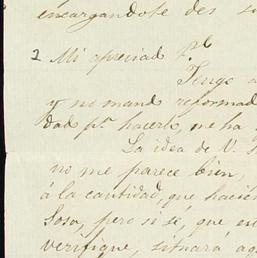 encargandote des su
2 Mi apreciad p.bl
Tengo a
y no mand reformad
dad p.a hacerlo, me ha
La idea de V.
no me parece bien,
á la cantidad, que hacien
Sosa, pero si sé, que en
verifique, situara aq